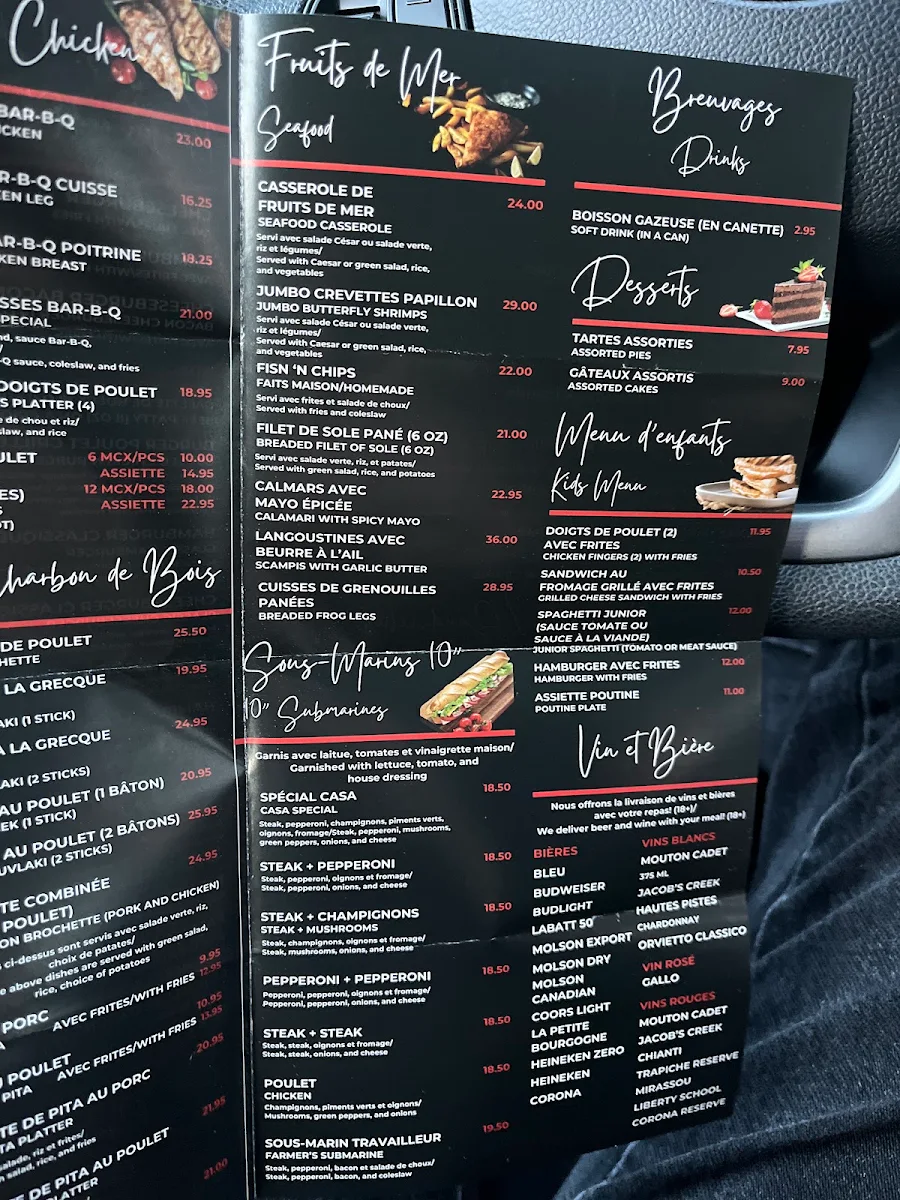 Chicken
BAR-B-Q
23.00
R-B-Q CUISSE
EN LEG
16.25
AR-B-Q POITRINE
KEN BREAST
18.25
SSES BAR-B-Q
21.00
PECIAL
nd, sauce Bar-B-Q,
-Q sauce, coleslaw, and fries
DOIGTS DE POULET
18.95
S PLATTER (4)
e de chou et riz/
slaw, and rice
ULET
6 MCX/PCS 10.00
ASSIETTE 14.95
12 MCX/PCS 18.00
ASSIETTE 22.95
Charbon de Bois
DE POULET
25.50
HETTE
LA GRECQUE
19.95
AKI (1 STICK)
À LA GRECQUE
24.95
AKI (2 STICKS)
AU POULET (1 BÂTON)
20.95
EK (1 STICK)
AU POULET (2 BÂTONS)
25.95
UVLAKI (2 STICKS)
TE COMBINÉE
24.95
POULET)
ON BROCHETTE (PORK AND CHICKEN)
ci-dessus sont servis avec salade verte, riz,
choix de patates/
e above dishes are served with green salad,
rice, choice of potatoes
PORC
9.95
AVEC FRITES/WITH FRIES 12.95
POULET
10.95
PITA AVEC FRITES/WITH FRIES 13.95
TE DE PITA AU PORC
20.95
TA PLATTER
salade, riz et frites/
n salad, rice, and fries
E DE PITA AU POULET
21.95
PLATTER
21.00
Fruits de Mer
Seafood
CASSEROLE DE
FRUITS DE MER
24.00
SEAFOOD CASSEROLE
Servi avec salade César ou salade verte,
riz et légumes/
Served with Caesar or green salad, rice,
and vegetables
JUMBO CREVETTES PAPILLON
29.00
JUMBO BUTTERFLY SHRIMPS
Servi avec salade César ou salade verte,
riz et légumes/
Served with Caesar or green salad, rice,
and vegetables
FISN ‘N CHIPS
22.00
FAITS MAISON/HOMEMADE
Servi avec frites et salade de choux/
Served with fries and coleslaw
FILET DE SOLE PANÉ (6 OZ)
21.00
BREADED FILET OF SOLE (6 OZ)
Servi avec salade verte, riz, et patates/
Served with green salad, rice, and potatoes
CALMARS AVEC
MAYO ÉPICÉE
22.95
CALAMARI WITH SPICY MAYO
LANGOUSTINES AVEC
BEURRE À L’AIL
36.00
SCAMPIS WITH GARLIC BUTTER
CUISSES DE GRENOUILLES
PANÉES
28.95
BREADED FROG LEGS
Sous-Marins 10”
10” Submarines
Garnis avec laitue, tomates et vinaigrette maison/
Garnished with lettuce, tomato, and
house dressing
SPÉCIAL CASA
18.50
CASA SPECIAL
Steak, pepperoni, champignons, piments verts,
oignons, fromage/Steak, pepperoni, mushrooms,
green peppers, onions, and cheese
STEAK + PEPPERONI
18.50
Steak, pepperoni, oignons et fromage/
Steak, pepperoni, onions, and cheese
STEAK + CHAMPIGNONS
18.50
STEAK + MUSHROOMS
Steak, champignons, oignons et fromage/
Steak, mushrooms, onions, and cheese
PEPPERONI + PEPPERONI
18.50
Pepperoni, pepperoni, oignons et fromage/
Pepperoni, pepperoni, onions, and cheese
STEAK + STEAK
18.50
Steak, steak, oignons et fromage/
Steak, steak, onions, and cheese
POULET
18.50
CHICKEN
Champignons, piments verts et oignons/
Mushrooms, green peppers, and onions
SOUS-MARIN TRAVAILLEUR
19.50
FARMER’S SUBMARINE
Steak, pepperoni, bacon et salade de choux/
Steak, pepperoni, bacon, and coleslaw
Breuvages
Drinks
BOISSON GAZEUSE (EN CANETTE) 2.95
SOFT DRINK (IN A CAN)
Desserts
TARTES ASSORTIES
7.95
ASSORTED PIES
GÂTEAUX ASSORTIS
9.00
ASSORTED CAKES
Menu d’enfants
Kids Menu
DOIGTS DE POULET (2)
11.95
AVEC FRITES
CHICKEN FINGERS (2) WITH FRIES
SANDWICH AU
10.50
FROMAGE GRILLÉ AVEC FRITES
GRILLED CHEESE SANDWICH WITH FRIES
SPAGHETTI JUNIOR
12.00
(SAUCE TOMATE OU
SAUCE À LA VIANDE)
JUNIOR SPAGHETTI (TOMATO OR MEAT SAUCE)
HAMBURGER AVEC FRITES
12.00
HAMBURGER WITH FRIES
ASSIETTE POUTINE
11.00
POUTINE PLATE
Vin et Bière
Nous offrons la livraison de vins et bières
avec votre repas! (18+)/
We deliver beer and wine with your meal! (18+)
BIÈRES
BLEU
BUDWEISER
BUDLIGHT
LABATT 50
MOLSON EXPORT
MOLSON DRY
MOLSON
CANADIAN
COORS LIGHT
LA PETITE
BOURGOGNE
HEINEKEN ZERO
HEINEKEN
CORONA
VINS BLANCS
MOUTON CADET
375 ML
JACOB’S CREEK
HAUTES PISTES
CHARDONNAY
ORVIETTO CLASSICO
VIN ROSÉ
GALLO
VINS ROUGES
MOUTON CADET
JACOB’S CREEK
CHIANTI
TRAPICHE RESERVE
MIRASSOU
LIBERTY SCHOOL
CORONA RESERVE